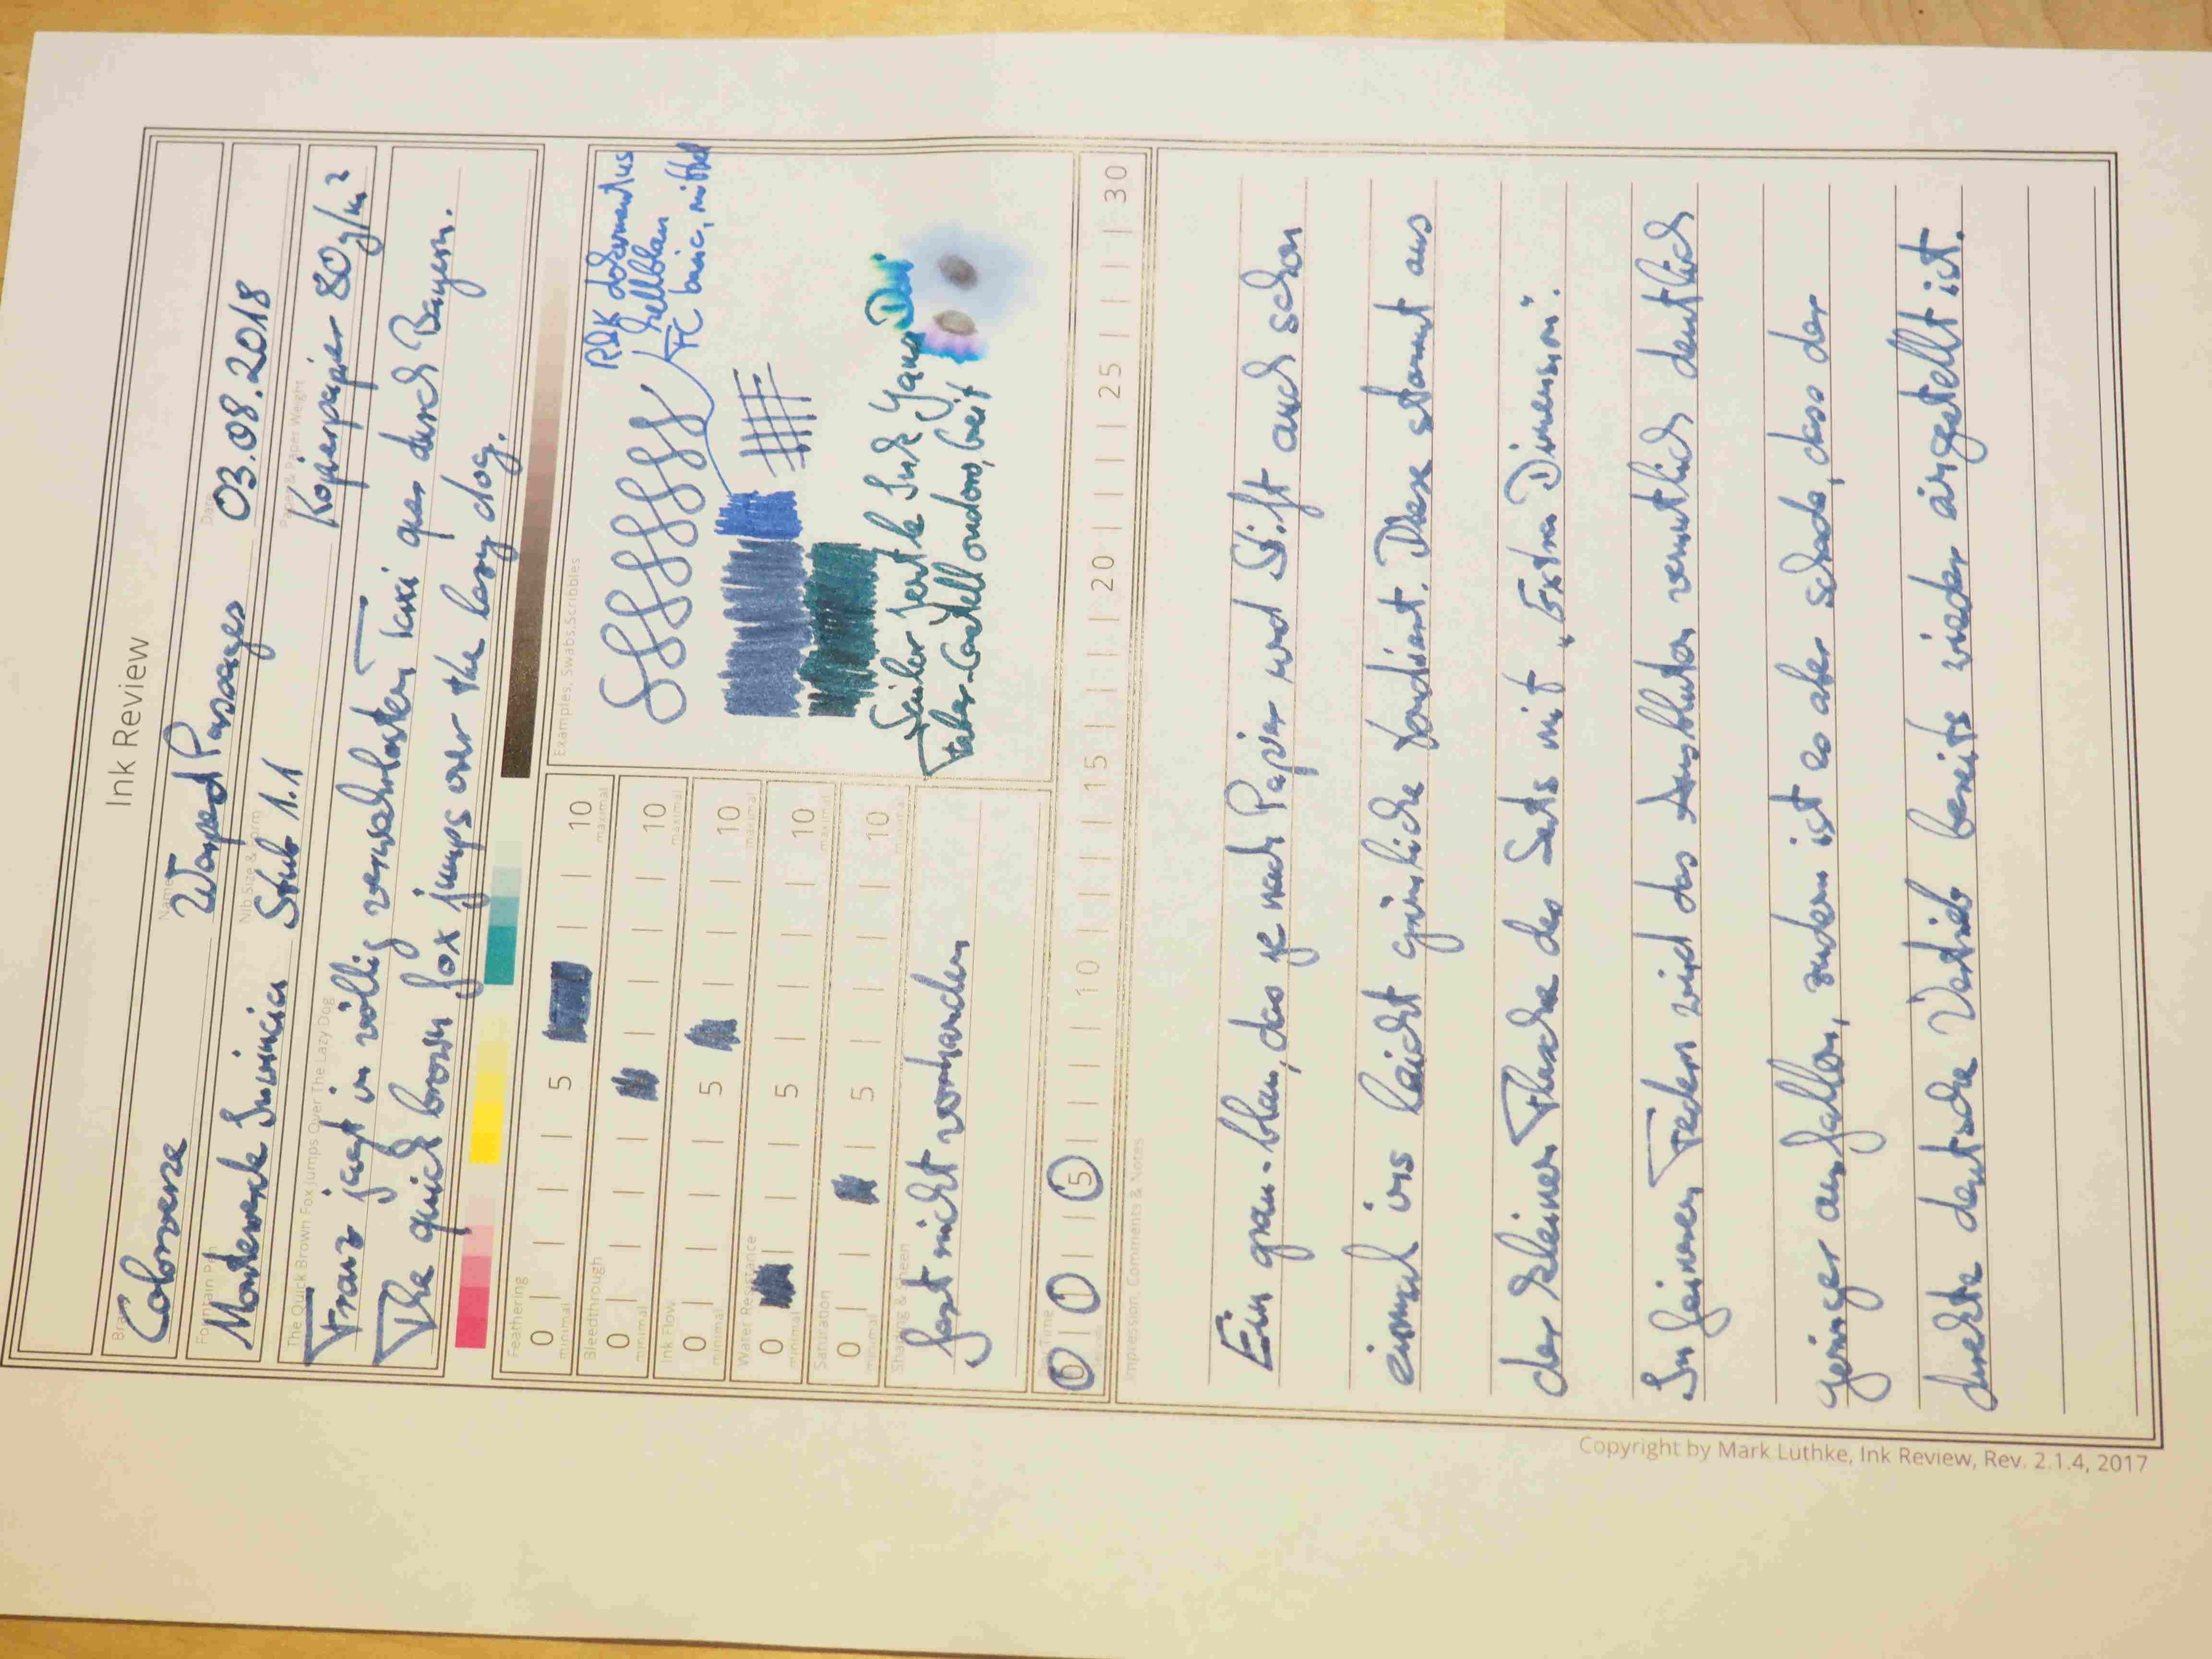 Ink Review
Brand
Colorverse
Name
Warped Passages
Date
03.08.2018
Fountain Pen
Monteverde Invincia
Nib Size & Form
Stub 1.1
Paper & Paper Weight
Kopierpapier 80g/m²
The Quick Brown Fox Jumps Over The Lazy Dog
Franz jagt im völlig verwahrlosten Taxi quer durch Bayern.
The quick brown fox jumps over the lazy dog.
Feathering
0 5 10
minimal maximal
Bleedthrough
0 10
minimal maximal
Ink Flow
0 5 10
minimal maximal
Water Resistance
0 5 10
minimal maximal
Saturation
0 5 10
minimal maximal
Shading & Sheen
fast nicht vorhanden
Examples, Swabs, Scribbles
R&K dokumentus
hellblau
FC basic, mittel
Ink
Faber-Castell breit
Time
0 1 5 10 15 20 25 30
Impression, Comments & Notes
Ein grau-blau, das je nach Papier und Stift auch schon
einmal ins leicht grünliche tendiert. Diese stammt aus
der kleinen Flasche des Sets mit „Extra Dimension".
In feineren Federn wird das Ausbluten vermutlich deutlich
geringer ausfallen, zudem ist es aber schade, dass der
direkte deutsche Vertrieb bereits wieder eingestellt ist.
Copyright by Mark Lüthke, Ink Review, Rev. 2.1.4, 2017